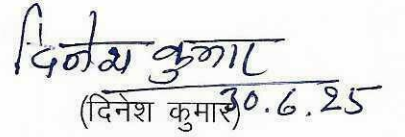 दिनेश कुमार
(दिनेश कुमार) 30.6.25